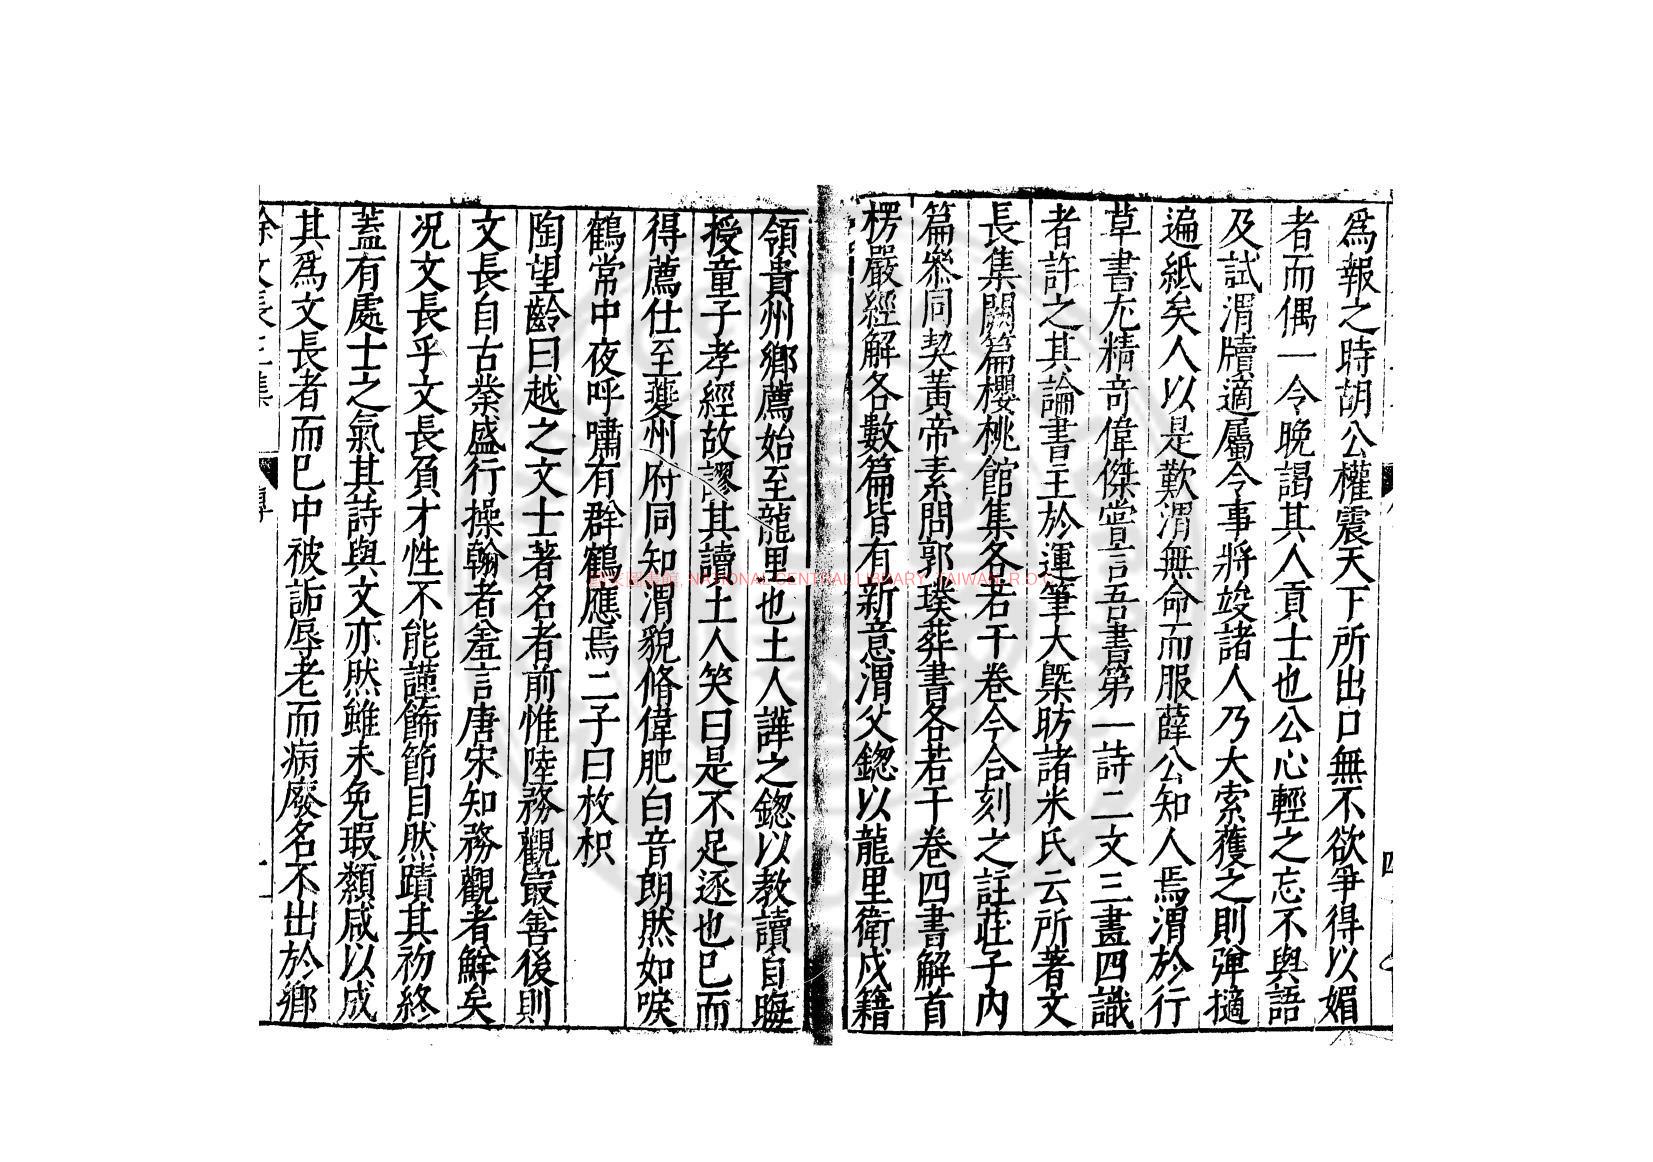 爲報之時胡公權震天下所出口無不欲爭得以媚
者而偶一令晚謁其人貢士也公心輕之忘不與語
及試渭牘適屬令事將竣諸人乃大索獲之則彈擿
遍紙矣人以是歎渭無命而服薛公知人焉渭於行
草書尤精竒偉傑嘗言吾書第一詩二文三畫四識
者許之其論書主於運筆大槩昉諸米氏云所著文
長集闕篇櫻桃館集各若干卷今合刻之註莊子内
篇叅同契黃帝素問郭璞葬書各若干卷四書解首
楞嚴經解各數篇皆有新意渭父鍃以龍里衛戍籍
領貴州鄉薦始至龍里也土人譁之鍃以教讀自晦
授童子孝經故謬其讀土人笑曰是不足逐也已而
得薦仕至夔州府同知渭貌脩偉肥白音朗然如唳
鶴常中夜呼嘯有群鶴應焉二子曰枚枳
陶望齡曰越之文士著名者前惟陸務觀最善後則
文長自古業盛行操翰者羞言唐宋知務觀者鮮矣
况文長乎文長負才性不能謹飾節目然蹟其初終
蓋有處士之氣其詩與文亦然雖未免瑕纇咸以成
其爲文長者而已中被詬辱老而病廢名不出於鄉
徐文長三集
傳
國家圖書館, NATIONAL CENTRAL LIBRARY, TAIWAN, R.O.C